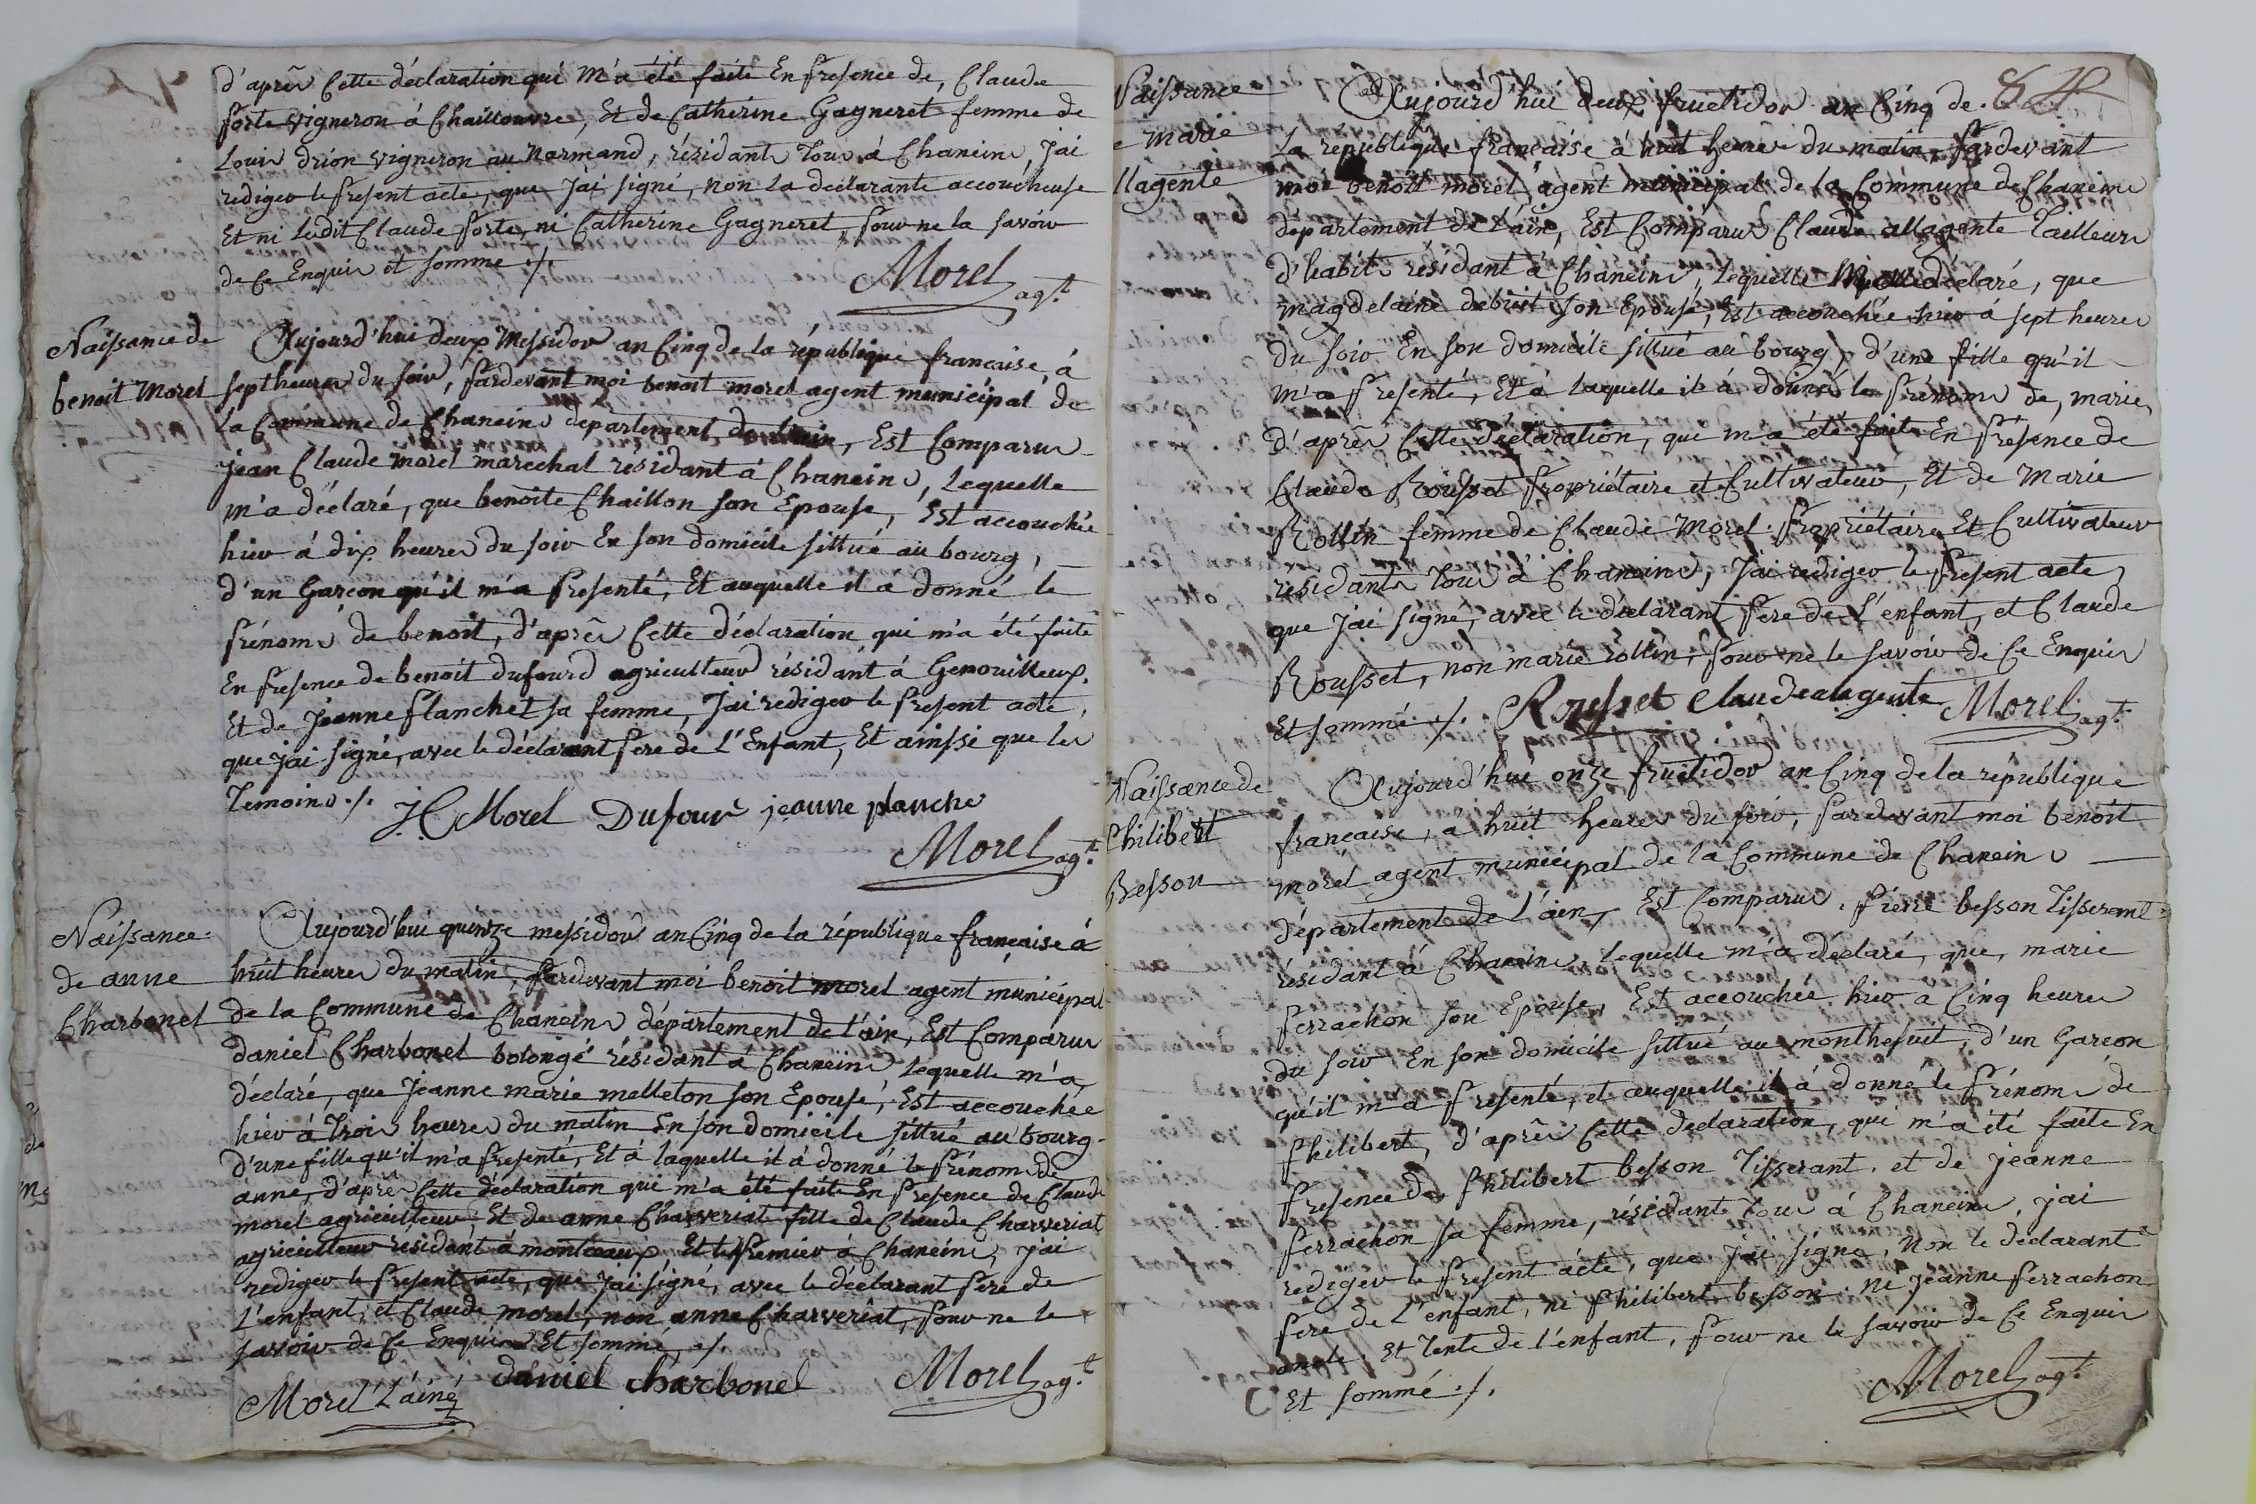 d'après Cette déclaration qui m'a été faite En presence de, Claude
forte vigneron à Chaillouvre, Et de Catherine Gagneret femme de
Louis drion vigneron au Normand, résidants tous à Chaneins, j'ai
rediger le present acte, que j'ai signé, non La declarante accoucheuse
Et ni Ledit Claude forte, ni Catherine Gagneret, pour ne la savoir
de Ce Enquis et somme ./.
Morel agt
Naissance de
benoit Morel
Aujourd'hui deux Messidor an Cinq de la république française, à
sept heures du soir, pardevant moi benoit morel agent municipal de
la Commune de Chaneins département de l'ain, Est Comparus
jean Claude morel marechal résidant à Chaneins, Lequelle
m'a déclaré, que benoite Chaillon son Epouse, Est accouchée
hier à dix heures du soir En son domicile sittué au bourg,
d'un Garcon qu'il m'a presenté, Et auquelle il à donné le
prénoms de benoit, d'après Cette déclaration qui m'a été faite
En presence de benoit dufourd agriculteur résidant à Genouilleux,
Et de jeanne planchet sa femme, j'ai rediger le present acte,
que j'ai signé, avec le déclarant pere de L'Enfant, Et ainssi que les
Temoins ./.
JC Morel Dufour jeanne planche
Morel agt
Naissance
de anne
Charbonel
Aujourd'hui quinze messidor an Cinq de la république française à
huit heures du matin, pardevant moi benoit morel agent municipal
de la Commune de Chaneins département de l'ain, Est Comparus
daniel Charbonel bolongé résidant à Chaneins Lequelle m'a
déclaré, que jeanne marie melleton son Epouse, Est accouchée
hier à trois heures du matin En son domicile sittué au bourg
d'une fille qu'il m'a presenté, Et à laquelle il à donné le prénoms de
anne, d'après Cette déclaration qui m'a été faite En presence de Claude
morel agriculteur, Et de anne Charveriat fille de Claude Charveriat
agriculteur résidant à montceaux Et le premier à Chaneins, j'ai
rediger le present acte, que j'ai signé, avec le déclarant pere de
L'enfant, et Claude morel, non anne Charveriat, pour ne le
savoir de Ce Enquis Et sommé, ./.
Morel L'ainé daniel charbonel Morel agt
84
Naissance
e marie
llagente
Aujourd'hui deux fructidor an Cinq de
La république française à huit heures du matin, pardevant
moi benoit morel, agent municipal de la Commune de Chaneins
département de L'ain, Est Comparus Claude allagente Tailleurs
d'habits résidant à Chaneins, Lequelle M'a déclaré, que
magdelaine debuit son Epouse, Est accouchée hier à sept heures
du soir En son domicile sittué au bourg, d'une fille qu'il
m'a presenté, Et à Laquelle il à donné le prénoms de, marie,
d'après Cette déclaration, que m'a été faite En présence de
Claude Rousset propriétaire et Cultivateur, Et de Marie
Rollin femme de Claude Morel propriétaire Et Cultivateur
résidants tous à Chaneins, j'ai rediger le present acte,
que j'ai signé, avec le déclarant pere de L'enfant, et Claude
Rousset, non marie rollin, pour ne le savoir de Ce Enquis
Et sommé ./. Rousset Claude alagente Morel agt
Naissance de
Philibert
Besson
Aujourd'hui onze fructidor an Cinq de la république
francaise, a huit heures du soir, pardevant moi benoit
morel agent municipal de la Commune de Chaneins
département de L'ain, Est Comparus, pierre besson Tisserant
résidant à Chaneins, Lequelle m'a déclaré, que, marie
perrachon son Epouse, Est accouchée hier a Cinq heures
du soir En son domicile sittué au monthepuit, d'un Garcon
qu'il m'a presenté, et auquelle il à donné le prénoms de
Philibert, d'après Cette declaration, qui m'a été faite En
presence de philibert besson Tisserant, et de jeanne
perrachon sa femme, résidants tous à Chaneins, j'ai
rediger le present acte, que j'ai signé, Non le déclarant
pere de L'enfant, ni philibert besson, ni jeanne perrachon
oncle, Et Tente de l'enfant, pour ne le savoir de Ce Enquis
Et sommé ./.
Morel agt